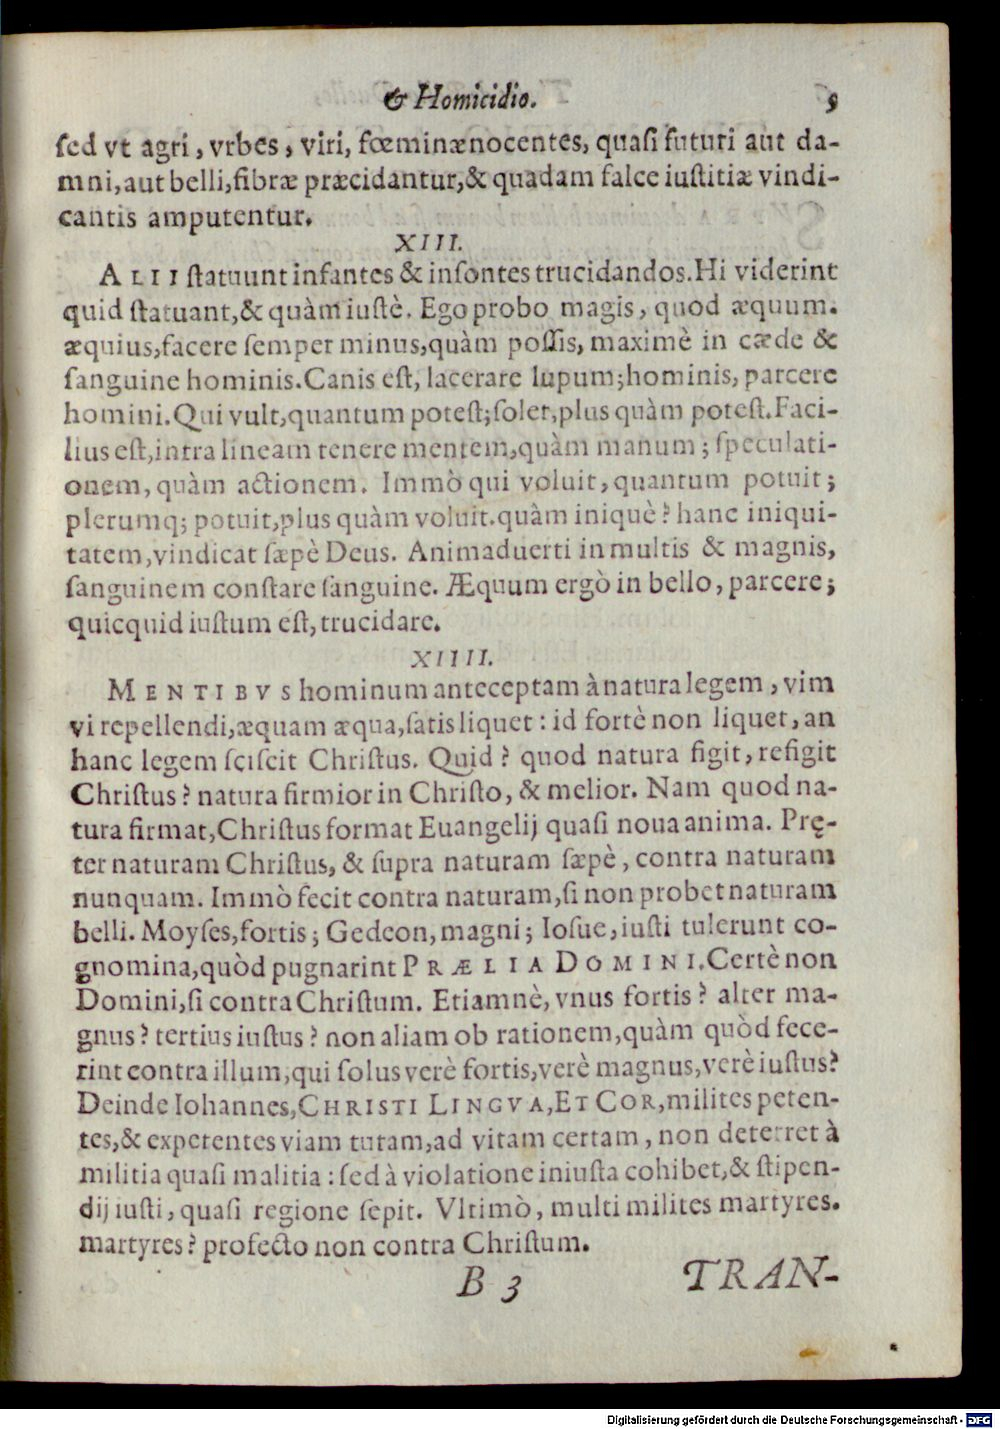 & Homicidio. 9
ſed vt agri, vrbes, viri, fœminæ nocentes, quaſi futuri aut da-
mni, aut belli, fibræ præcidantur, & quadam falce iuſtitiæ vindi-
cantis amputentur.
XIII.
ALII ſtatuunt infantes & inſontes trucidandos. Hi viderint
quid ſtatuant, & quàm iuſtè. Ego probo magis, quod æquum.
æquius, facere ſemper minus, quàm poſſis, maximè in cæde &
ſanguine hominis. Canis eſt, lacerare lupum; hominis, parcere
homini. Qui vult, quantum poteſt; ſolet, plus quàm poteſt. Faci-
lius eſt, intra lineam tenere mentem, quàm manum; ſpeculati-
onem, quàm actionem. Immò qui voluit, quantum potuit;
plerumq; potuit, plus quàm voluit. quàm iniquè? hanc iniqui-
tatem, vindicat ſæpè Deus. Animaduerti in multis & magnis,
ſanguinem conſtare ſanguine. Æquum ergò in bello, parcere;
quicquid iuſtum eſt, trucidare.
XIIII.
MENTIBVS hominum anteceptam à natura legem, vim
vi repellendi, æquam æqua, ſatis liquet: id fortè non liquet, an
hanc legem ſciſcit Chriſtus. Quid? quod natura figit, refigit
Chriſtus? natura firmior in Chriſto, & melior. Nam quod na-
tura firmat, Chriſtus format Euangelij quaſi noua anima. Prę-
ter naturam Chriſtus, & ſupra naturam ſæpè, contra naturam
nunquam. Immò fecit contra naturam, ſi non probet naturam
belli. Moyſes, fortis; Gedeon, magni; Ioſue, iuſti tulerunt co-
gnomina, quòd pugnarint PRÆLIA DOMINI. Certè non
Domini, ſi contra Chriſtum. Etiamnè, vnus fortis? alter ma-
gnus? tertius iuſtus? non aliam ob rationem, quàm quòd fece-
rint contra illum, qui ſolus verè fortis, verè magnus, verè iuſtus?
Deinde Iohannes, CHRISTI LINGVA, ET COR, milites peten-
tes, & expetentes viam tutam, ad vitam certam, non deterret à
militia quaſi malitia: ſed à violatione iniuſta cohibet, & ſtipen-
dij iuſti, quaſi regione ſepit. Vltimò, multi milites martyres.
martyres? profecto non contra Chriſtum.
B 3 TRAN-
Digitalisierung gefördert durch die Deutsche Forschungsgemeinschaft - DFG